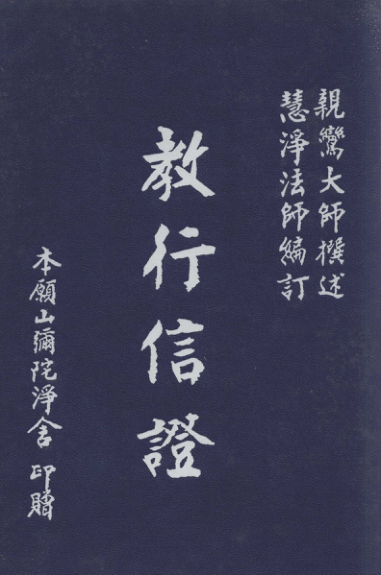 親鸞大師撰述
慧淨法師編訂
教行信證
本願山彌陀淨舍 印贈